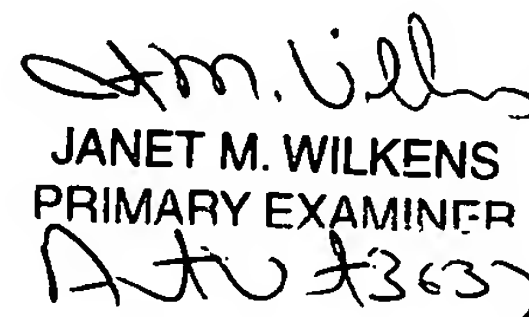 JM. Wilkens
JANET M. WILKENS
PRIMARY EXAMINER